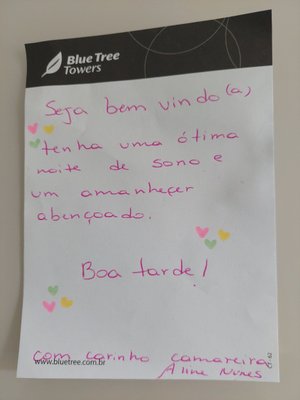 Blue Tree
Towers
Seja bem vindo(a),
tenha uma ótima
noite de sono e
um amanheçer
abençoado.
Boa tarde!
com carinho camareira
www.bluetree.com.br
Aline Nunes